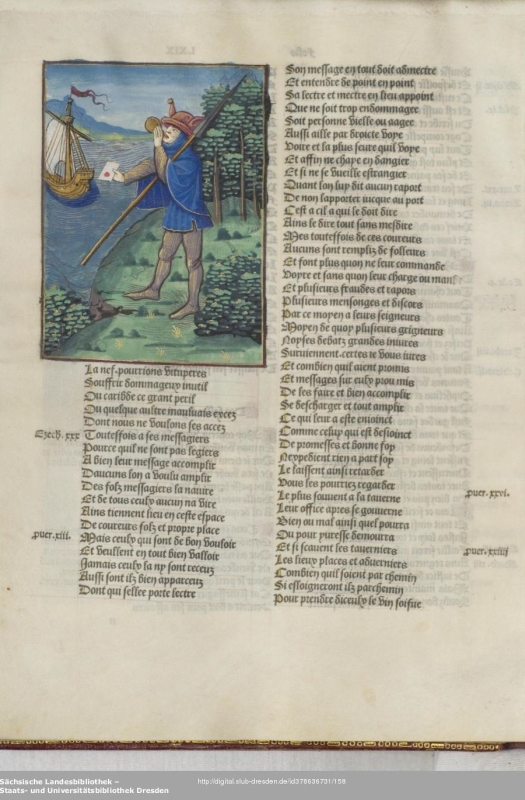 La nef. pourrions vituperes
Souffrir dommageux inutil
Ou caribde ce grant peril
Ou quelque aultre mauluais excez
Dont nous ne voulons ses accez
Ezech. xxx
Touteffois a ses messagiers
Pource quil ne sont pas legiers
A bien leur message accomplir
Daucuns lon a voulu amplir
Des folz messagiers la nauire
Et de tous ceulx aucun na vire
Ains tiennent lieu en ceste espace
De coureurs folz et propre place
puer. xiii.
Mais ceulx qui sont de bon vouloir
Et veullent en tout bien valloir
Jamais ceulx la ny sont receuz
Aussi sont ilz bien apparceuz
Dont qui sellee porte lectre
Son message en tout doit admectre
Et entendre de point en point
Sa lectre et mectre en lieu appoint
Que ne soit trop endommagee
Soit personne vielle ou aagee
Aussi aille par droicte voye
Voire et la plus seure quil voye
Et affin ne chaye en dangier
Et si ne se vueille estrangier
Quant lon luy dit aucun raport
De non lapporter iucque au port
Cest a cil a qui le doit dire
Ains le dire tout sans mesdire
Mes touteffois de ces coureurs
Aucuns sont rempliz de folleurs
Et font plus quon ne leur commande
Voyre et sans quon leur charge ou
Et plusieurs fraudes et rapors
Plusieurs mensonges et discors
Par ce moyen a leurs seigneurs
Moyen de quoy plusieurs grigneurs
Noyses debatz grandes iniures
Suruiennent. certes te vous iures
Et combien quil aient promis
Et messages sur eulx piou mis
De les faire et bien accomplir
Se descharger et tout amplir
Ce qui leur a este enioinct
Comme celuy qui est desioinct
De promesses et bonne foy
Nexpedient rien a part soy
Le laissent ainsi retarder
Vous les pourriez regarder
Le plus souuent a la tauerne
puer. xxvi.
Leur office apres se gouuerne
Bien ou mal ainsi quel pourra
Ou pour puresse demourra
Et si scauent les tauerniers
puer. xxiiij
Les lieux places et aduerniers
Combien quil soient par chemin
Si esloigneront ilz parchemin
Pour prendre diceulx le vin soifue
Sächsische Landesbibliothek –
Staats- und Universitätsbibliothek Dresden
http://digital.slub-dresden.de/id378636731/158